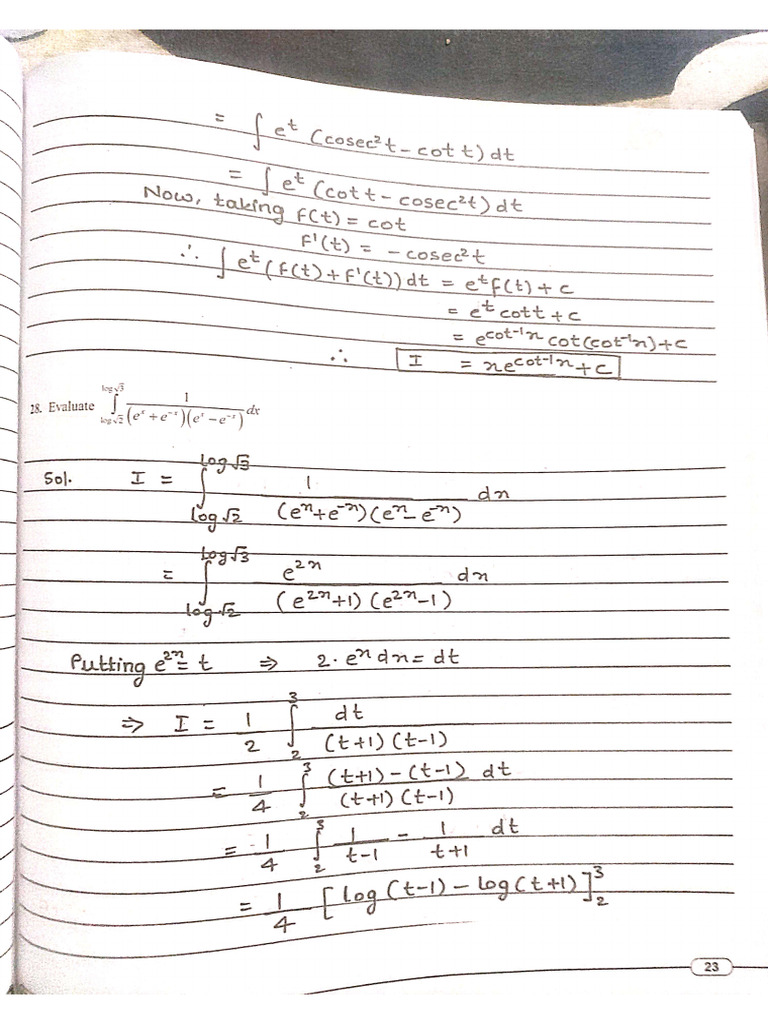 = ∫ e^t (cosec²t - cot t) dt
= ∫ e^t (cot t - cosec²t) dt
Now, taking f(t) = cot
f'(t) = - cosec²t
∴ ∫ e^t (f(t) + f'(t)) dt = e^t f(t) + c
= e^t cot t + c
= e^{cot⁻¹x} cot(cot⁻¹x) + c
∴ I = xe^{cot⁻¹x} + c
28. Evaluate ∫_{log√2}^{log√3} 1/((e^x + e^{-x})(e^x - e^{-x})) dx
Sol. I = ∫_{log√2}^{log√3} 1/((e^x + e^{-x})(e^x - e^{-x})) dx
= ∫_{log√2}^{log√3} e^{2x}/((e^{2x}+1) (e^{2x}-1)) dx
Putting e^{2x} = t ⇒ 2·e^x dx = dt
⇒ I = 1/2 ∫_2^3 dt/((t+1) (t-1))
= 1/4 ∫_2^3 ((t+1) - (t-1))/((t+1) (t-1)) dt
= 1/4 ∫_2^3 1/(t-1) - 1/(t+1) dt
= 1/4 [log(t-1) - log(t+1)]_2^3
23